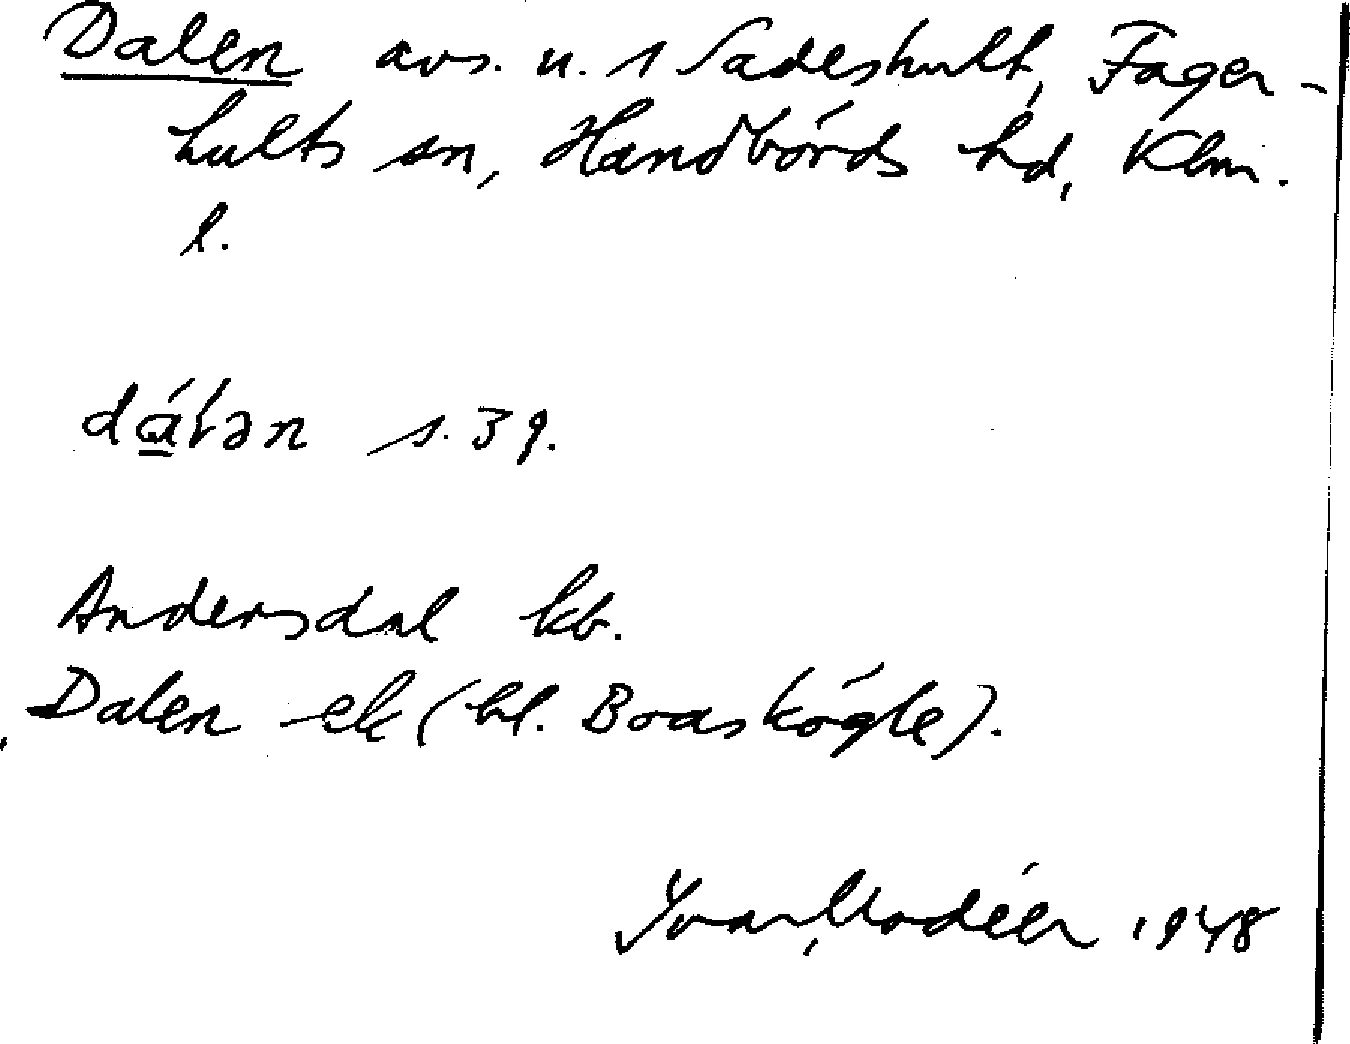 Dalen avs. u. 1 Sadeshult, Fager-
hults sn, Handbörds hd, Klm.
l.
dálən s. 39.
Andersdal kb.
Dalen ek (bl. Boaskögle).
Ivar Modéer 1948